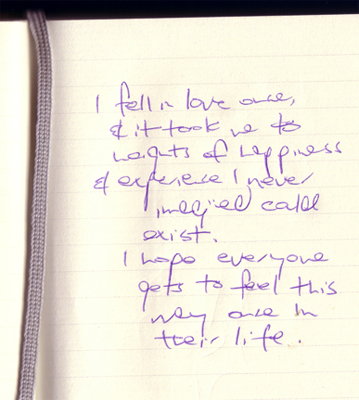 I fell in love once,
& it took me to
heights of happiness
& experience I never
imagined could
exist.
I hope everyone
gets to feel this
way once in
their life.